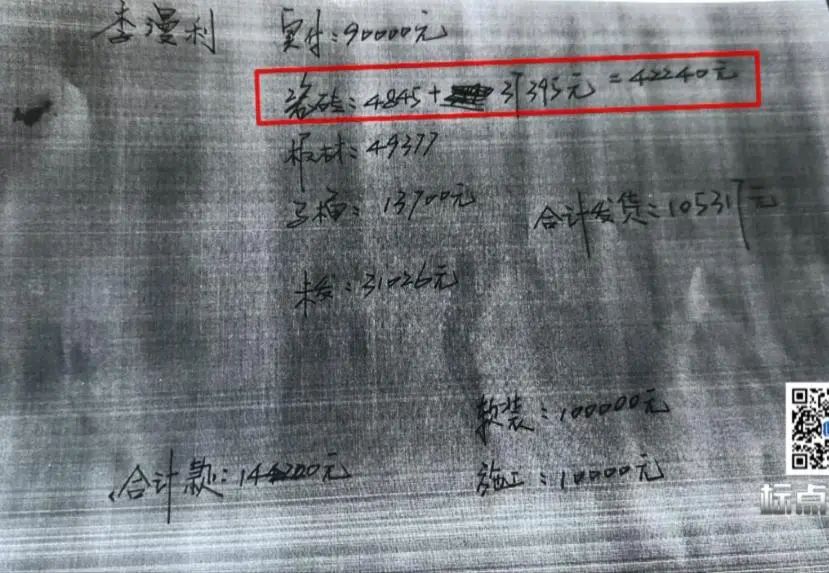 李漫利 实付:90000元
瓷砖:4845+37395元=42240元
板材:49377
马桶:13700元 合计发货:105317元
未发:31026元
软装:100000元
合计款:144200元 施工:10000元
标点